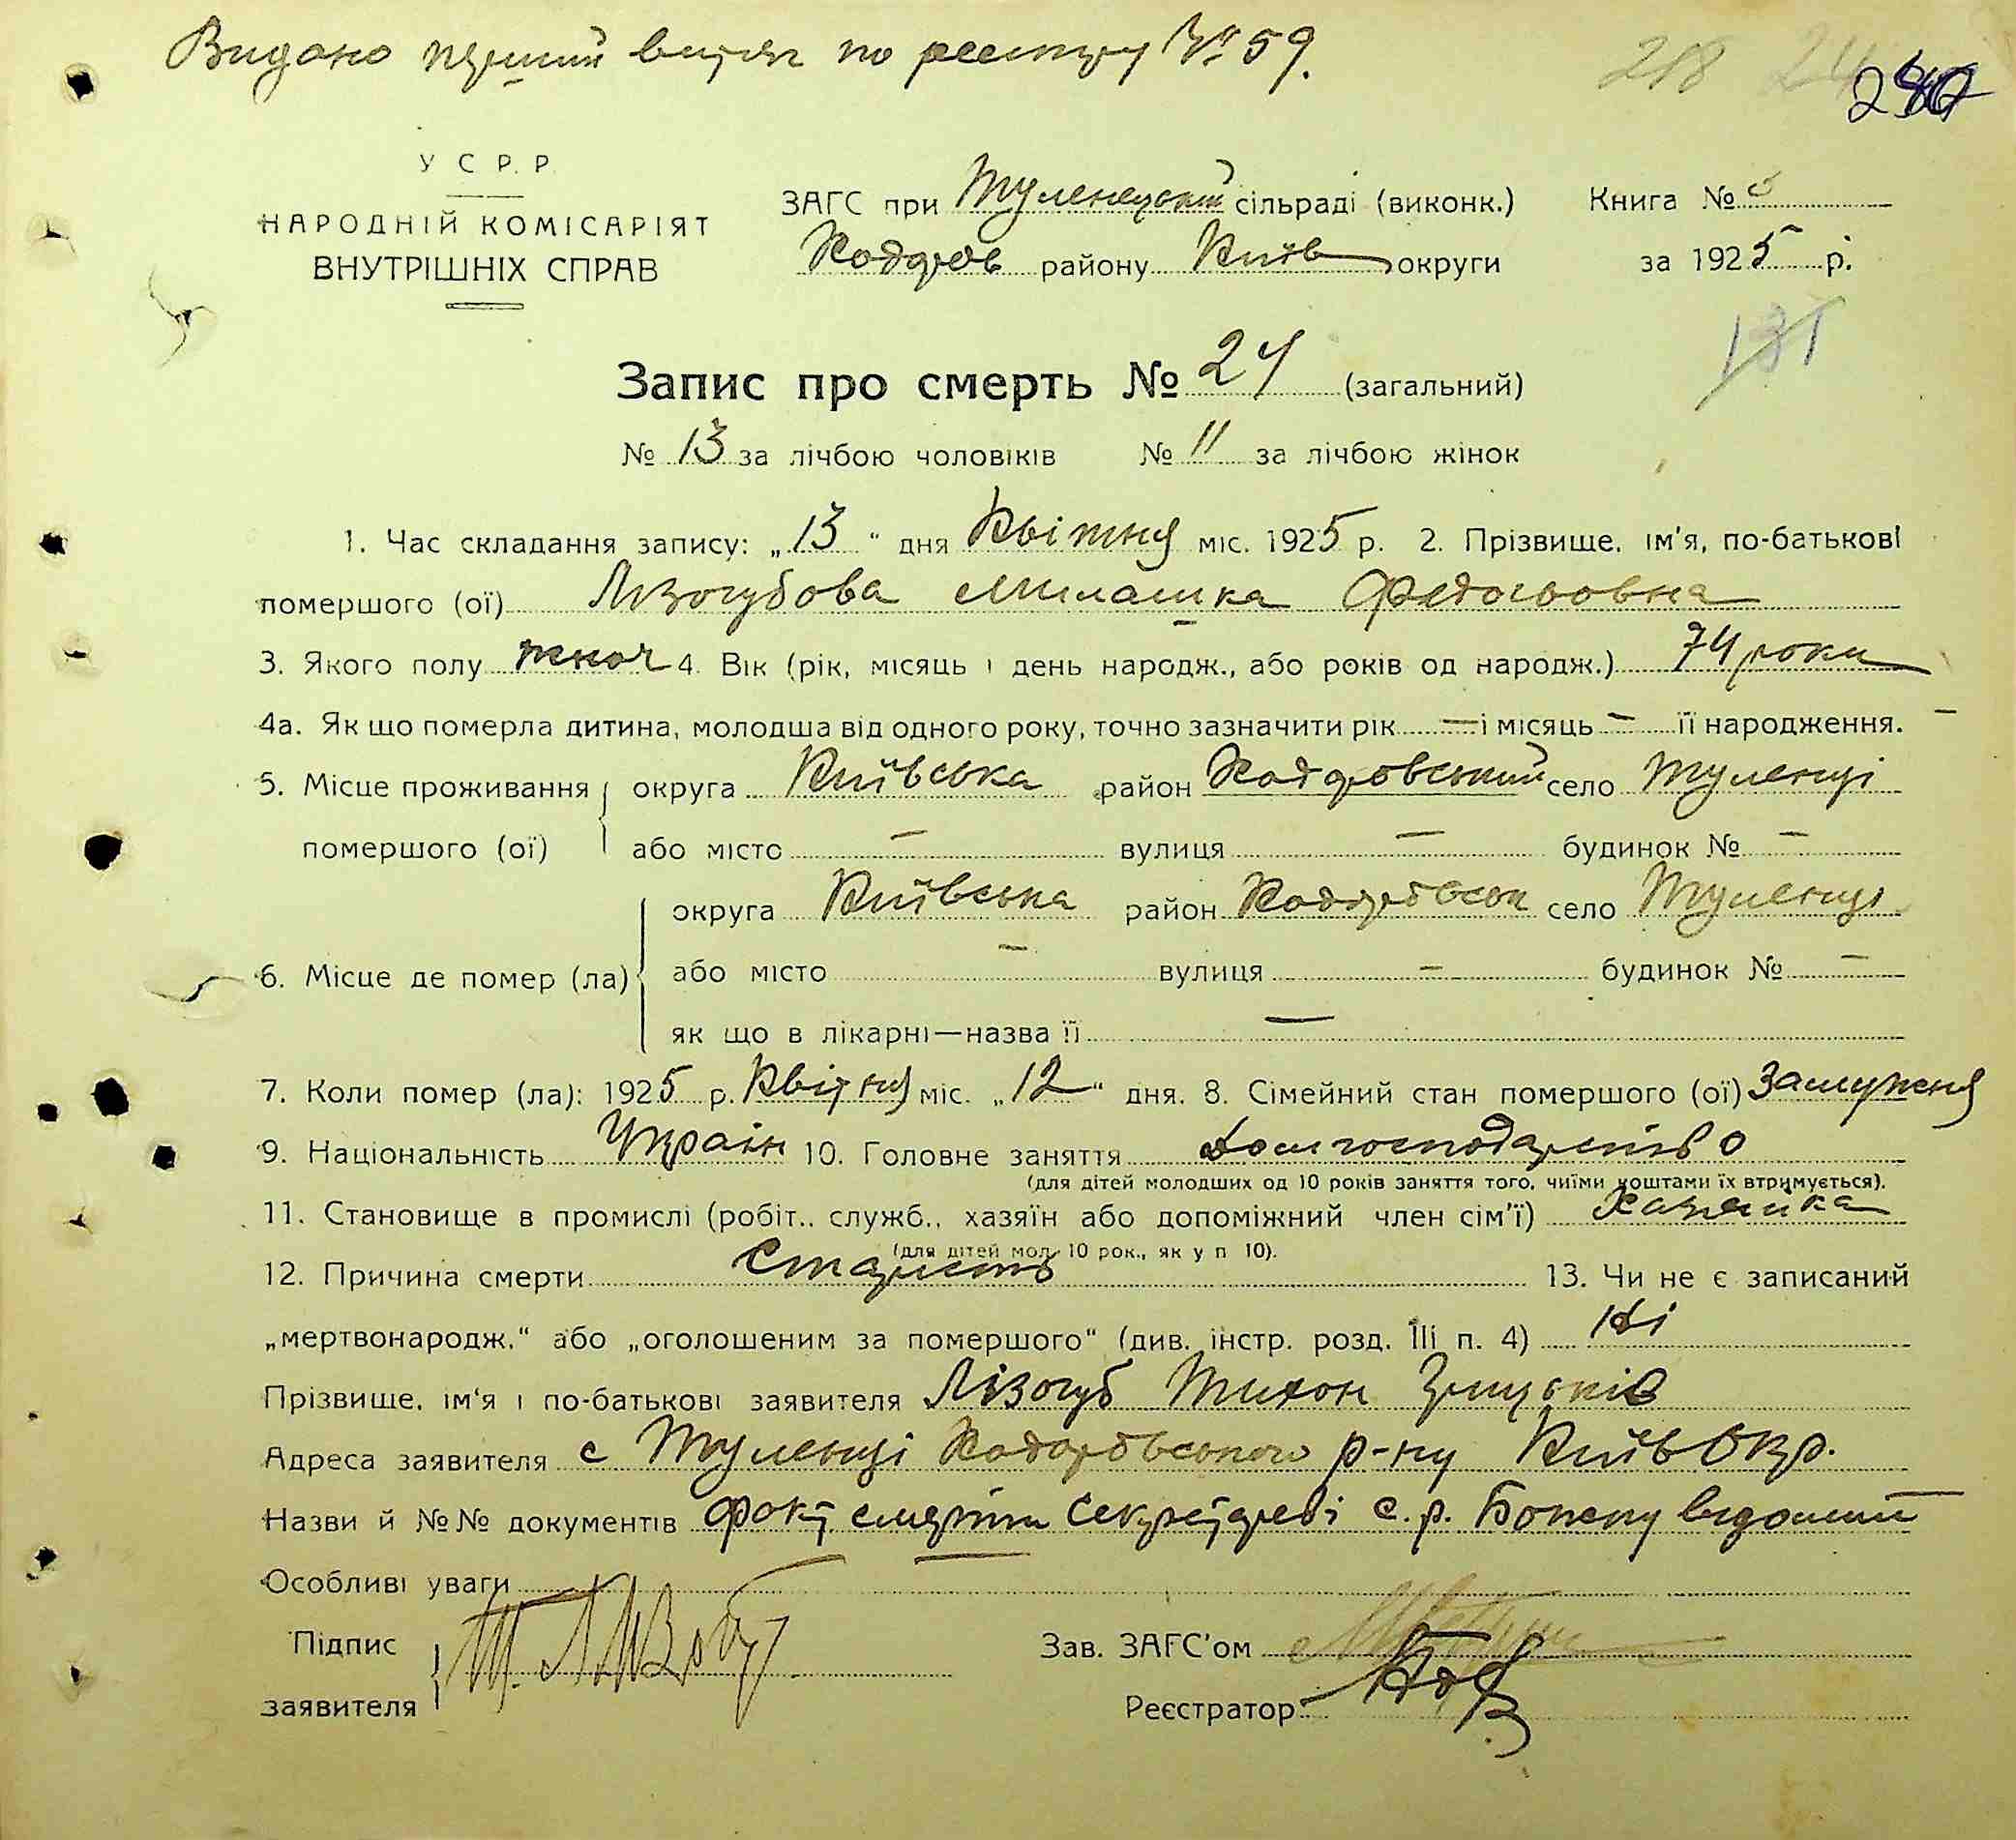 Видано перший витяг по реестру № 59.
218 24
У С Р. Р.
НАРОДНІЙ КОМІСАРІЯТ
ВНУТРІШНІХ СПРАВ
ЗАГС при Туленецькій сільраді (виконк.) Книга №
Кодоров району Київ округи за 1925 р.
131
Запис про смерть № 24 (загальний)
№ 13 за лічбою чоловіків № 11 за лічбою жінок
1. Час складання запису: „13“ дня Квітня міс. 1925 р. 2. Прізвище, ім'я, по-батькові
помершого (ої) Лізогубова Милашка Федосьовна
3. Якого полу жіноч 4. Вік (рік, місяць і день народж., або років од народж.) 74 роки
4а. Як що померла дитина, молодша від одного року, точно зазначити рік — і місяць — її народження. —
5. Місце проживання округа Київська район Кодоровський село Туленці
помершого (ої) або місто — вулиця — будинок № —
округа Київська район Кодоровськ село Туленці
6. Місце де помер (ла) або місто — вулиця — будинок № —
як що в лікарні—назва її —
7. Коли помер (ла): 1925 р. Квітня міс. „12“ дня. 8. Сімейний стан помершого (ої) Замужня
9. Національність Україн 10. Головне заняття Домгосподарство
(для дітей молодших од 10 років заняття того, чиїми коштами їх втримується).
11. Становище в промислі (робіт., служб., хазяїн або допоміжний член сім'ї) Хазяйка
(для дітей мол. 10 рок., як у п 10).
12. Причина смерти Старість 13. Чи не є записаний
„мертвонародж.“ або „оголошеним за помершого“ (див. інстр. розд. III п. 4) Ні
Прізвище, ім'я і по-батькові заявителя Лізогуб Тихон
Адреса заявителя с Туленці Кодоровського р-ну Київ Окр.
Назви й №№ документів Факт смерти Секретареві с.р. Бопену відомий
Особливі уваги
Підпис Т. Лізогуб Зав. ЗАГС'ом
заявителя Реєстратор